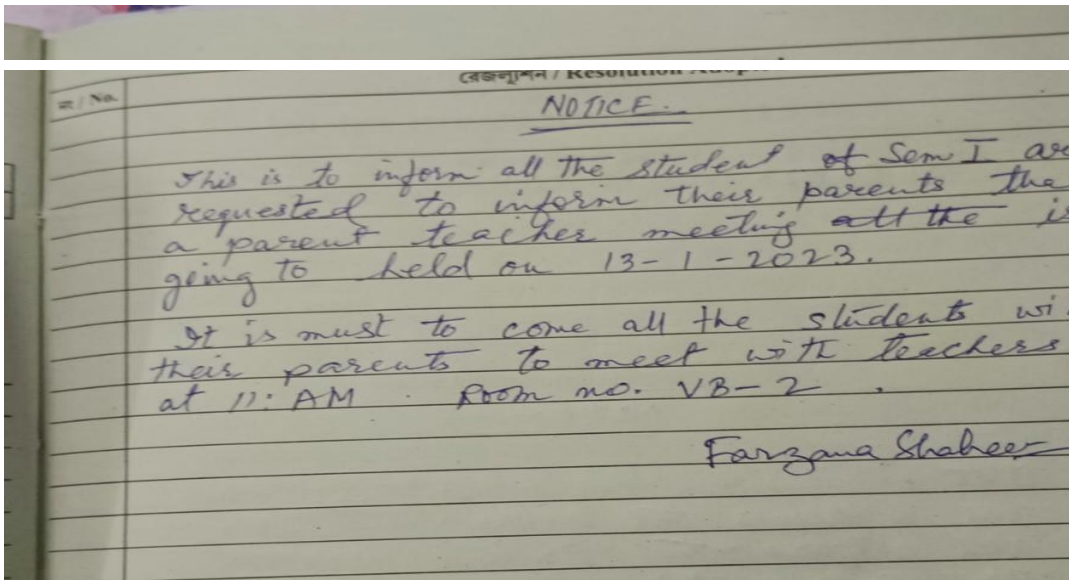 রেজল্যুশন / Resolution
নং / No.
NOTICE.
This is to inform all the student of Sem I are
requested to inform their parents tha
a parent teacher meeting all the is
going to held on 13-1-2023.
It is must to come all the students wi
their parents to meet with teachers
at 11: AM. Room no. VB-2.
Farzana Shaheen